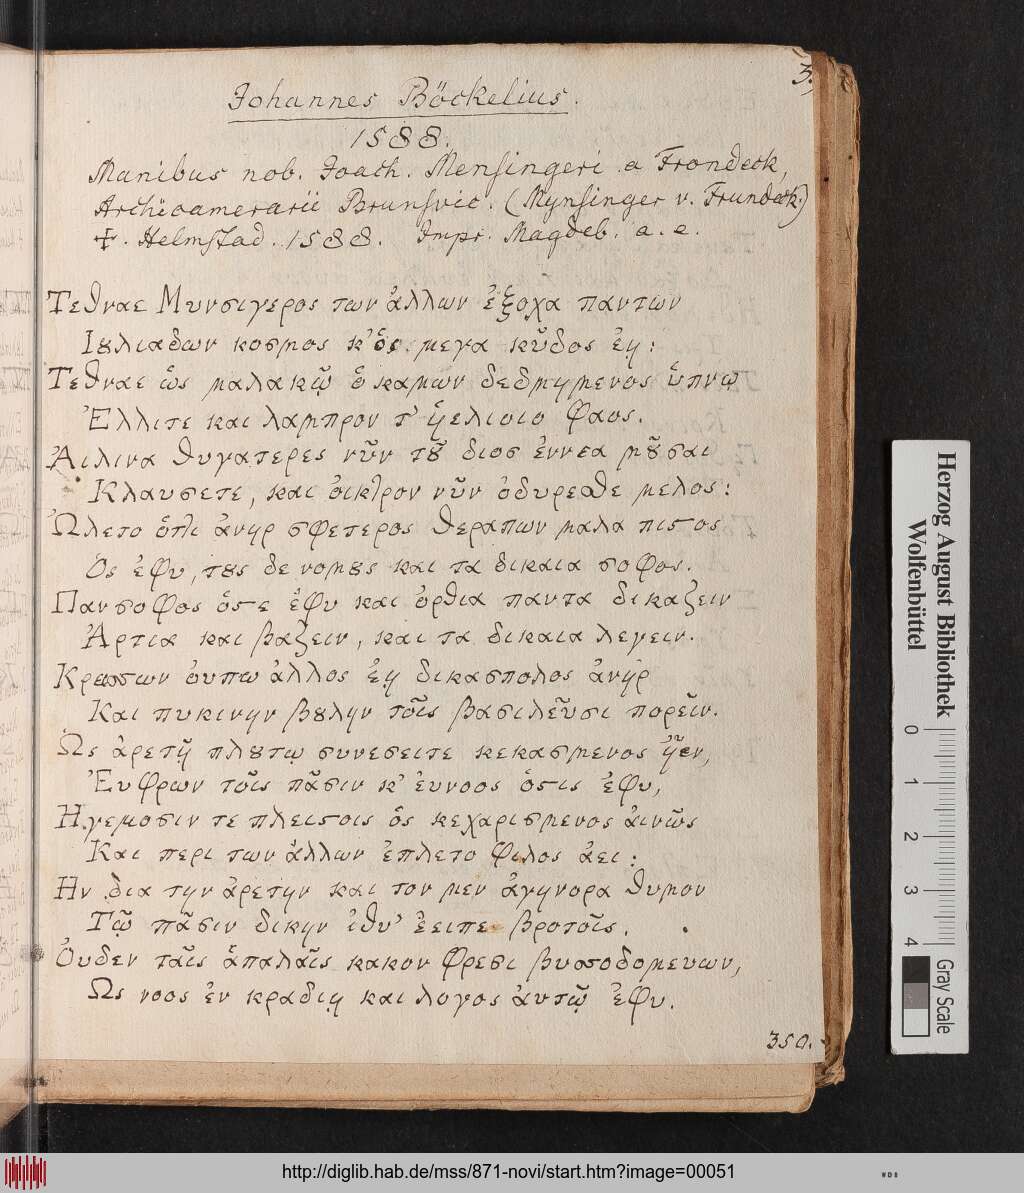 3.
Johannes Böckelius.
1588.
Manibus nob. Joach. Mensingeri a Frondeck,
Archicamerarii Brunsvic. (Mynsinger v. Frundeck.)
✝. Helmstad. 1588. Impr. Magdeb. a. e.
Τεθναε Μυνσιγερος των ἀλλων ἐξοχα παντων
Ιȣλιαδων κοσμος κ' ὁς μεγα κῦδος ἐη:
Τεθναε ὡς μαλακῳ ὁ καμων δεδμημενος ὑπνῳ
Ἐλλιπε και λαμπρον τ' ἠελιοιο φαος.
Ἀιλινα θυγατερες νῦν τȣ διος ἐννεα μȣσαι
Κλαυσετε, και ὀικτρον νῦν ὀδυρεσθε μελος:
Ὠλετο ὁττι ἀνηρ σφετερος θεραπων μαλα πιςος
Ὁς ἐφυ, τȣς δε νομȣς και τα δικαια σοφος.
Πανσοφος ὁςε ἐφυ και ὀρθια παντα δικαζειν
Ἀρτια και βαζειν, και τα δικαια λεγειν.
Κρεισσων ὀυπω ἀλλος ἐη δικασπολος ἀνηρ
Και πυκινην βȣλην τοῖς βασιλεῦσι πορεῖν.
Ὡς ἀρετῃ πλȣτῳ συνεσειτε κεκασμενος ἦεν,
Ἐυφρων τοῖς πᾶσιν κ' ἐυνοος ὁςις ἐφυ,
Ηγεμοσιν τε πλειςοις ὁς κεχαρισμενος ἀινῶς
Και περι των ἀλλων ἐπλετο φιλος ἀει:
Ην δια την ἀρετην και τον μεν ἀγηνορα θυμον
Τῳ πᾶσιν δικην ἰθυ' ἐειπε βροτοῖς.
Ὀυδεν ταῖς ἁπαλαῖς κακον φρεσι βυσσοδομευων,
Ὡς νοος ἐν κραδιῃ και λογος ἀυτῳ ἐφυ.
350.
Herzog August Bibliothek
Wolfenbüttel
0 1 2 3 4
Gray Scale
http://diglib.hab.de/mss/871-novi/start.htm?image=00051
WDB